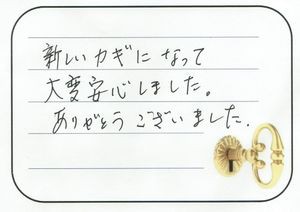 新しいカギになって
大変安心しました。
ありがとうございました.